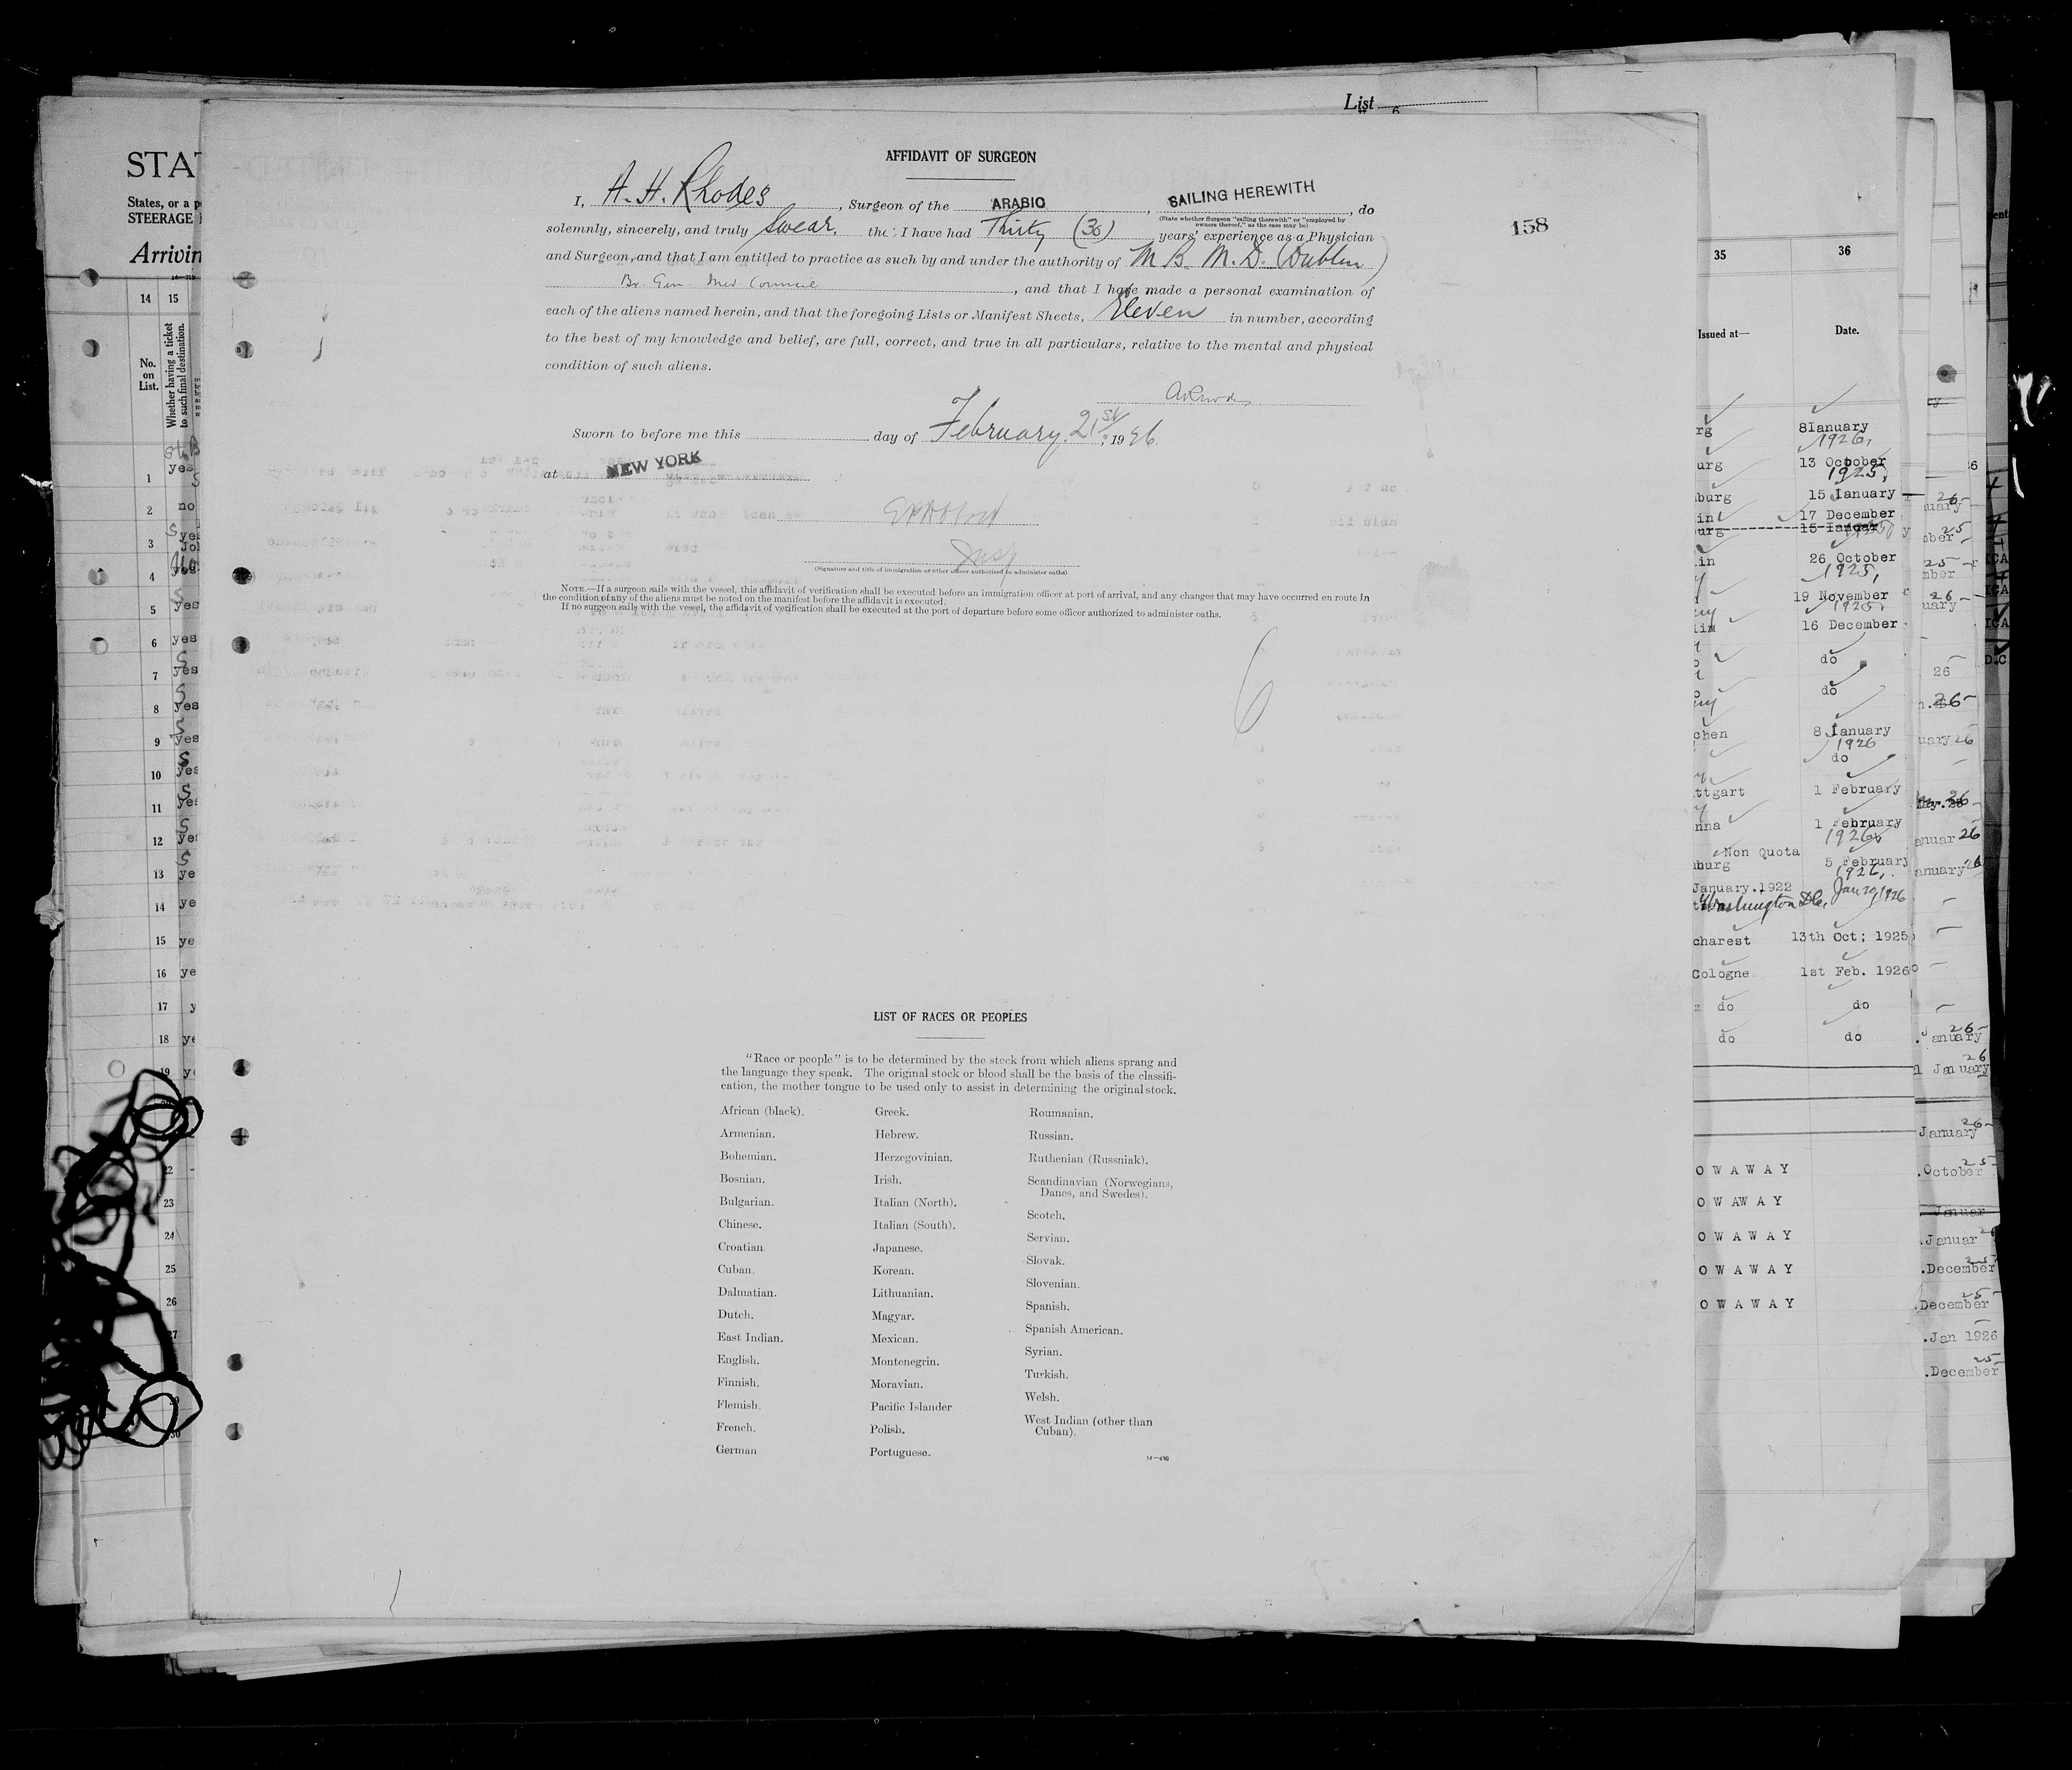 List
6
AFFIDAVIT OF SURGEON
I, A. H. Rhodes, Surgeon of the ARABIC, SAILING HEREWITH, do
(State whether Surgeon "sailing therewith" or "employed by owners thereof," as the case may be)
158
solemnly, sincerely, and truly Swear, tha I have had Thirty (30) years' experience as a Physician
and Surgeon, and that I am entitled to practice as such by and under the authority of M B. M. D. (Dublin)
Br. Gen. Med. Council, and that I have made a personal examination of
each of the aliens named herein, and that the foregoing Lists or Manifest Sheets, Eleven in number, according
to the best of my knowledge and belief, are full, correct, and true in all particulars, relative to the mental and physical
condition of such aliens.
Sworn to before me this day of February 21st, 1926.
at NEW YORK
Insp
(Signature and title of immigration or other officer authorized to administer oaths)
NOTE.—If a surgeon sails with the vessel, this affidavit of verification shall be executed before an immigration officer at port of arrival, and any changes that may have occurred en route in
the condition of any of the aliens must be noted on the manifest before the affidavit is executed.
If no surgeon sails with the vessel, the affidavit of verification shall be executed at the port of departure before some officer authorized to administer oaths.
6
LIST OF RACES OR PEOPLES
"Race or people" is to be determined by the stock from which aliens sprang and
the language they speak. The original stock or blood shall be the basis of the classifi-
cation, the mother tongue to be used only to assist in determining the original stock.
African (black).
Armenian.
Bohemian.
Bosnian.
Bulgarian.
Chinese.
Croatian.
Cuban.
Dalmatian.
Dutch.
East Indian.
English.
Finnish.
Flemish.
French.
German
Greek.
Hebrew.
Herzegovinian.
Irish.
Italian (North).
Italian (South).
Japanese.
Korean.
Lithuanian.
Magyar.
Mexican.
Montenegrin.
Moravian.
Pacific Islander
Polish.
Portuguese.
Roumanian.
Russian.
Ruthenian (Russniak).
Scandinavian (Norwegians,
Danes, and Swedes).
Scotch.
Servian.
Slovak.
Slovenian.
Spanish.
Spanish American.
Syrian.
Turkish.
Welsh.
West Indian (other than
Cuban).
STAT
States, or a p
STEERAGE
Arrivin
14 15
No.
on
List.
Whether having a ticket
to such final destination.
1 yes
2 no
3 yes
4 yes
5 yes
6 yes
7 yes
8 yes
9 yes
10 yes
11 yes
12 yes
13 ye
14 ye
15 ye
16 ye
17 y
18 ye
19 y
22
23
24
25
26
27
30
35 36
Issued at— Date.
rg 8 January
1926,
urg 13 October
1925,
burg 15 January
in 17 December
urg 15 Januar
in 26 October
1925,
19 November
1925.
lin 16 December
do
do
chen 8 January
1926
do
ttgart 1 February
nna 1 February
1926
Non Quota
burg 5 February
1926,
January.1922 Jan 29, 1926
Washington D.C.
charest 13th Oct; 1925
Cologne 1st Feb. 1926
do do
do do
O W A W A Y
O W A W A Y
O W A W A Y
O W A W A Y
O W A W A Y
26
uary
25
mber
25
mber
26
uary
26
26
uary 26
anuar 26
anuary 26
26
anuary
26
January
26
January
25
.October
Januar
.Januar
25
.December
25
.December
.Jan 1926
25
.December
ICA
ICA
ICA
D.C